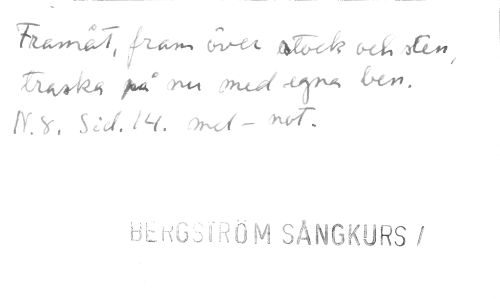 Framåt, fram över stock och sten,
traska på nu med egna ben.
N. 8. Sid. 14. mel - not.
BERGSTRÖM SÅNGKURS /